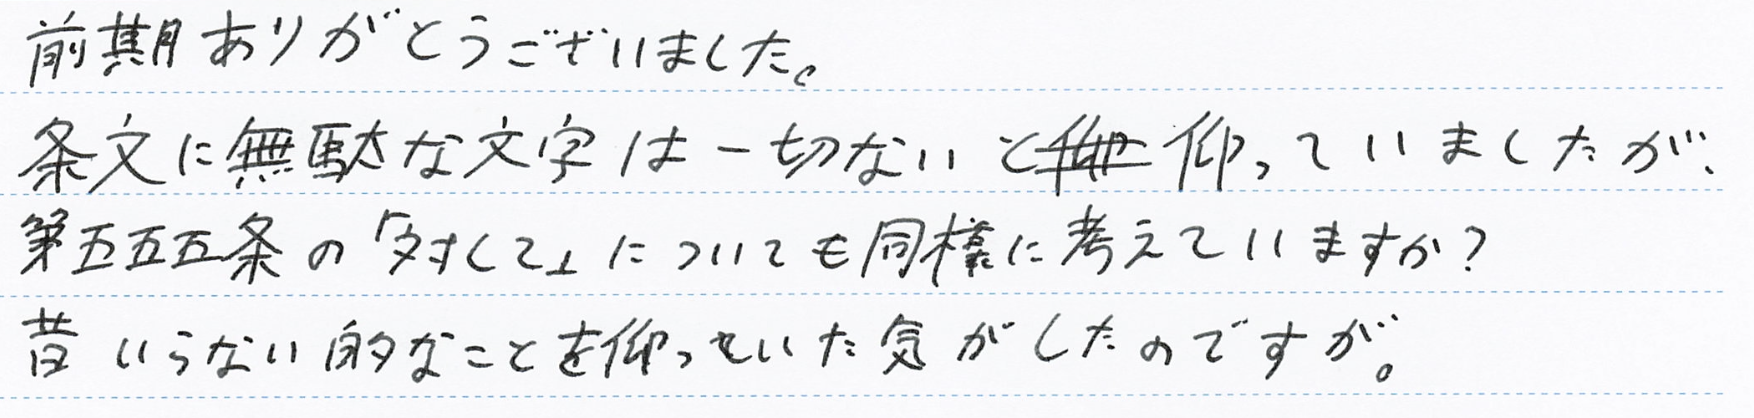 前期ありがとうございました。
条文に無駄な文字は一切ないと仰っていましたが、
第五五五条の「対して」についても同様に考えていますか?
昔いらない的なことを仰っていた気がしたのですが。